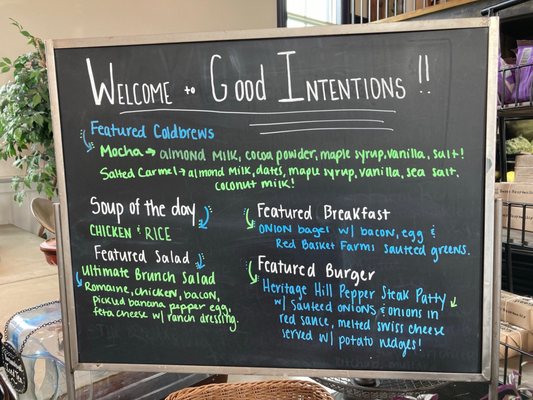 WELCOME to GOOD INTENTIONS!!
Featured Coldbrews
Mocha → almond milk, cocoa powder, maple syrup, vanilla, salt!
Salted Carmel → almond milk, dates, maple syrup, vanilla, sea salt,
coconut milk!
Soup of the day
CHICKEN & RICE
Featured Salad
Ultimate Brunch Salad
Romaine, chicken, bacon,
pickled banana pepper, egg,
feta cheese w/ ranch dressing.
Featured Breakfast
Onion bagel w/ bacon, egg &
Red Basket Farms sauteed greens.
Featured Burger
Heritage Hill Pepper Steak Patty
w/ sauteed onions & onions in
red sauce, melted swiss cheese
served w/ potato wedges!